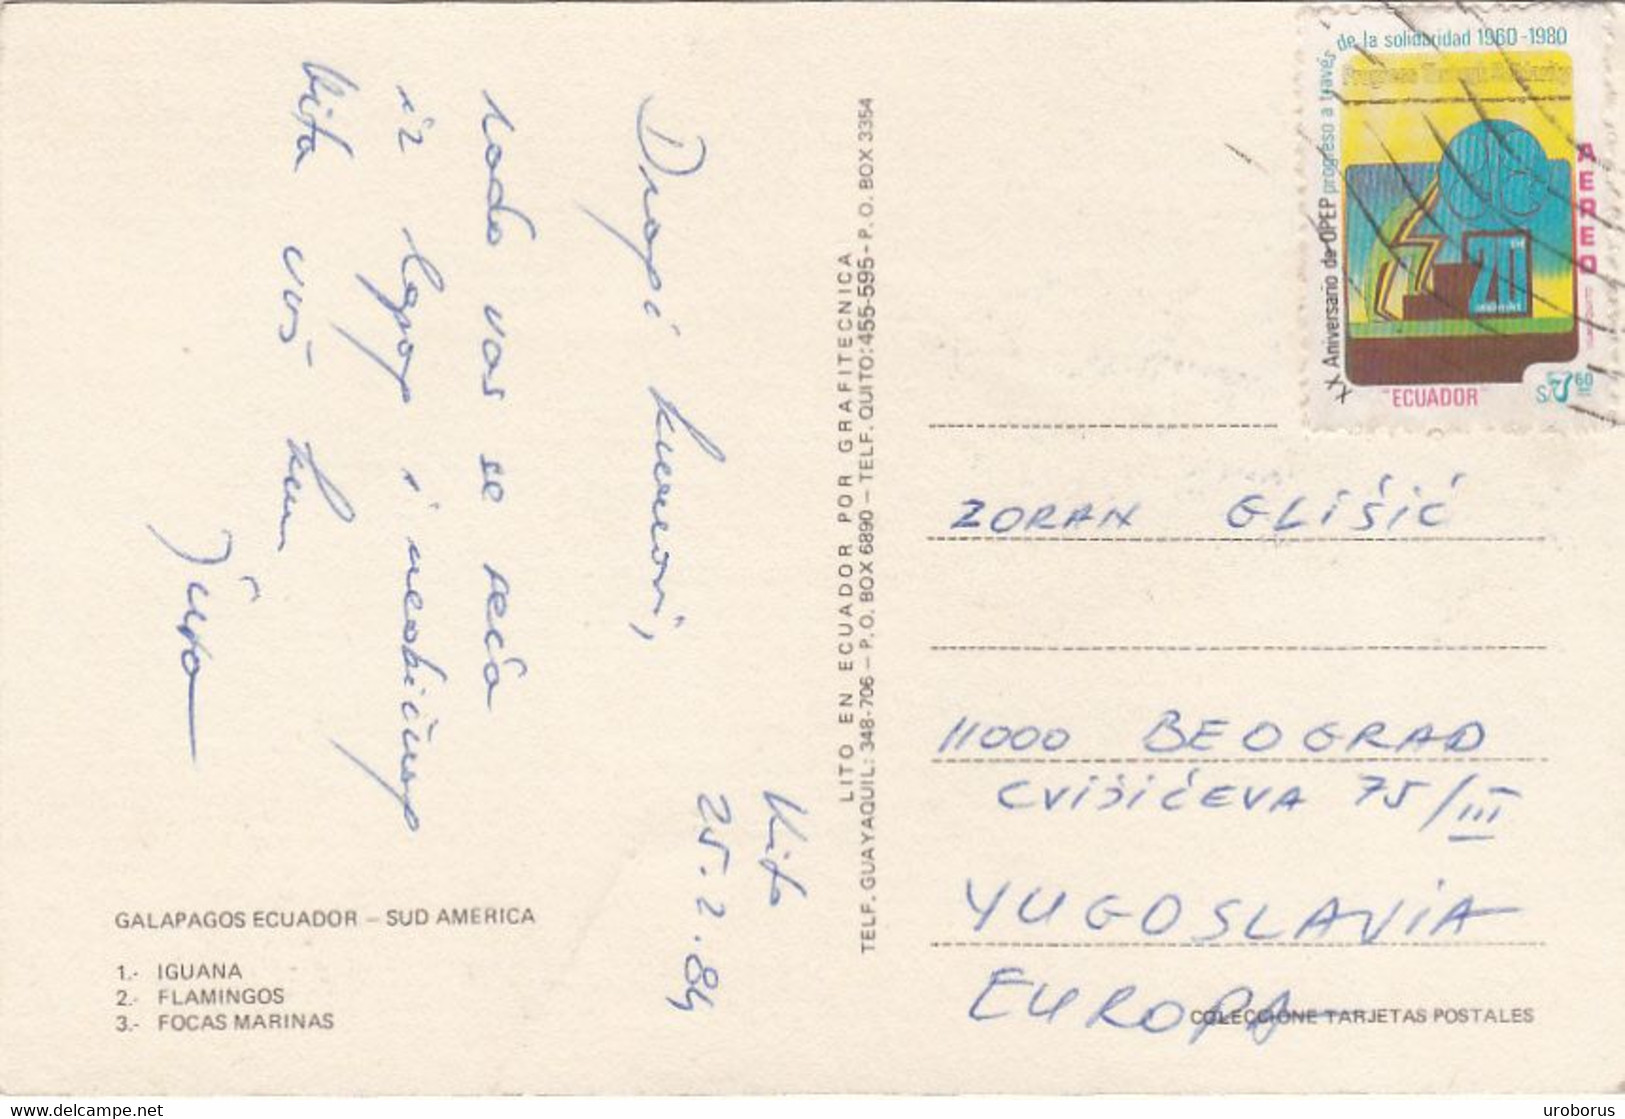 Kito
25.2.84
Dragi kumovi,
rado vas se seća
iz lepog i neobičnog
Kita vaš kum
GALAPAGOS ECUADOR – SUD AMERICA
1.- IGUANA
2.- FLAMINGOS
3.- FOCAS MARINAS
LITO EN ECUADOR POR GRAFITECNICA
TELF. GUAYAQUIL: 348-706 – P.O. BOX 6890 – TELF. QUITO: 455-595 - P. O. BOX 3354
XX Aniversario de OPEP progreso a través de la solidaridad 1960-1980
Progress through Solidarity
AEREO
20
"ECUADOR"
S/7 60
ZORAN GLIŠIĆ
11000 BEOGRAD
CVIJIĆEVA 75/III
YUGOSLAVIA
EUROPA
COLECCIONE TARJETAS POSTALES
delcampe.net
uroborus